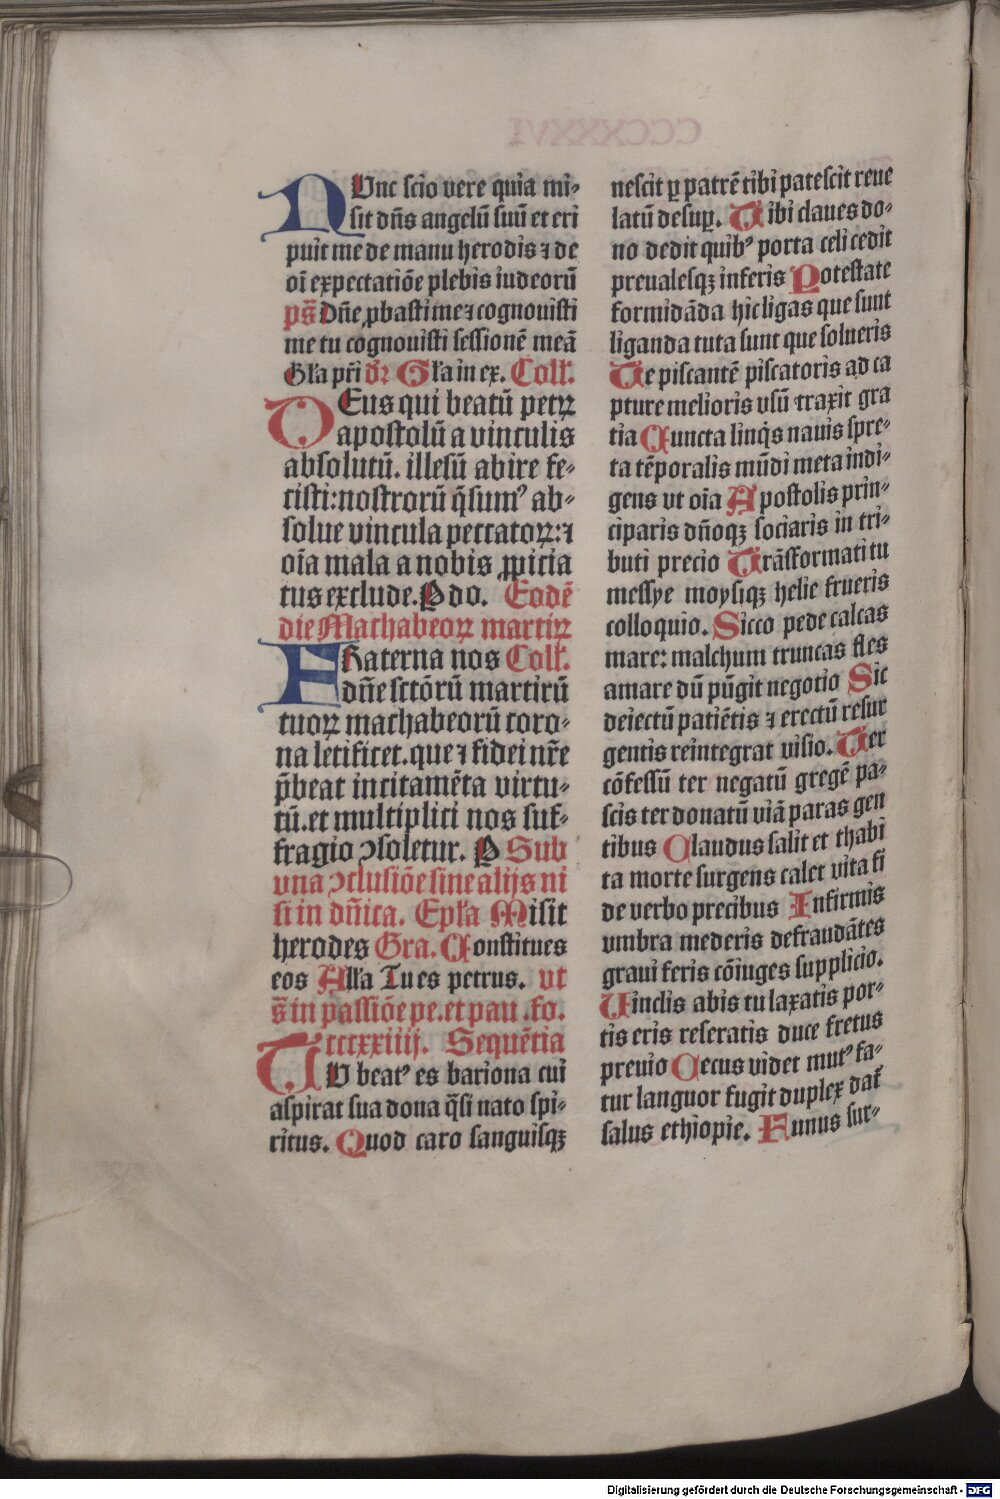 NUnc scio vere quia mi-
sit dn̄s angelū suū et eri
puit me de manu herodis ⁊ de
oī expectatiōe plebis iudeorū
ps̄ Dn̄e ꝓbasti me ⁊ cognouisti
me tu cognouisti sessionē meā
Gl'a pr̄i d'r Gl'a in ex. Coll'.
DEus qui beatū petrꝝ
apostolū a vinculis
absolutū. illesū abire fe-
cisti: nostrorū q̄sumꝰ ab-
solue vincula peccatoꝝ: ⁊
oīa mala a nobis ꝓpicia
tus exclude. P do. Eodē
die Machabeoꝝ martirꝝ
FRaterna nos Coll'.
dn̄e sctōrū martirū
tuoꝝ machabeorū coro-
na letificet. que ⁊ fidei nr̄e
p̄beat incitamēta virtu-
tū. et multiplici nos suf-
fragio ꝯsoletur. P Sub
vna ꝯclusiōe sine alijs ni
si in dn̄ica. Epl'a Misit
herodes Gra. Constitues
eos All'a Tu es petrus. vt
s̄ in passiōe pe. et pau. fo.
ccccxxiiij. Sequētia
TU beatꝰ es bariona cui
aspirat sua dona q̄si nato spi-
ritus. Quod caro sanguisqꝫ
nescit ꝑ patrē tibi patescit reue
latū desuꝑ. Tibi claues do-
no dedit quibꝰ porta celi cedit
preualesqꝫ inferis Potestate
formidāda hic ligas que sunt
liganda tuta sunt que solueris
Te piscantē piscatoris ad ca
pture melioris vsū traxit gra
tia Cuncta linq̄s nauis spre-
ta tēporalis mūdi meta indi-
gens vt oīa Apostolis prin-
ciparis dn̄oqꝫ sociaris in tri-
buti precio Trāsformati tu
messye moysiqꝫ helie frueris
colloquio. Sicco pede calcas
mare: malchum truncas fles
amare dū pūgit negotio Sic
deiectū patiētis ⁊ erectū resur
gentis reintegrat visio. Ter
cōfessū ter negatū gregē pa-
scis ter donatū viā paras gen
tibus Claudus salit et thabi
ta morte surgens calet vita fi
de verbo precibus Infirmis
vmbra mederis defraudātes
graui feris cōiuges supplicio.
Uinclis abis tu laxatis por-
tis eris reseratis duce fretus
preuio Cecus videt mutꝰ fa-
tur languor fugit duplex dat̄
salus ethiopie. Funus sur-
Digitalisierung gefördert durch die Deutsche Forschungsgemeinschaft - DFG